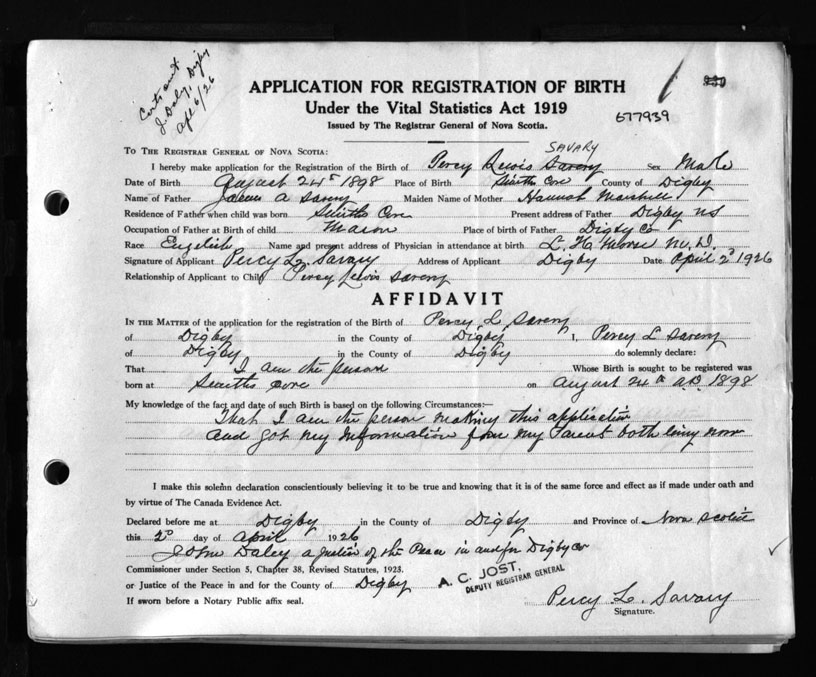 Certs sent
J. Daley, Digby
Apl 6/26
APPLICATION FOR REGISTRATION OF BIRTH
Under the Vital Statistics Act 1919
Issued by The Registrar General of Nova Scotia.
677939
SAVARY
TO THE REGISTRAR GENERAL OF NOVA SCOTIA:
I hereby make application for the Registration of the Birth of Percy Lewis Savery Sex Male
Date of Birth August 24th 1898 Place of Birth Smiths Cove County of Digby
Name of Father James A Savery Maiden Name of Mother Hannah Marshall
Residence of Father when child was born Smiths Cove Present address of Father Digby NS
Occupation of Father at Birth of child Mason Place of birth of Father Digby Co
Race English Name and present address of Physician in attendance at birth L. H. Morse M.D.
Signature of Applicant Percy L. Savary Address of Applicant Digby Date April 2d 1926
Relationship of Applicant to Child Percy Lewis Savery
AFFIDAVIT
IN THE MATTER of the application for the registration of the Birth of Percy L Savery
of Digby in the County of Digby I, Percy L Savery
of Digby in the County of Digby do solemnly declare:
That I am the person Whose Birth is sought to be registered was
born at Smiths Cove on August 24th AD 1898
My knowledge of the fact and date of such Birth is based on the following Circumstances:—
That I am the person making this application
and got my information from my Parent both living now
I make this solemn declaration conscientiously believing it to be true and knowing that it is of the same force and effect as if made under oath and
by virtue of The Canada Evidence Act.
Declared before me at Digby in the County of Digby and Province of Nova Scotia
this 2d day of April 1926
John Daley a Justice of the Peace in and for Digby Co
Commissioner under Section 5, Chapter 38, Revised Statutes, 1923.
or Justice of the Peace in and for the County of Digby
A. C. JOST,
DEPUTY REGISTRAR GENERAL
If sworn before a Notary Public affix seal.
Percy L. Savary
Signature.